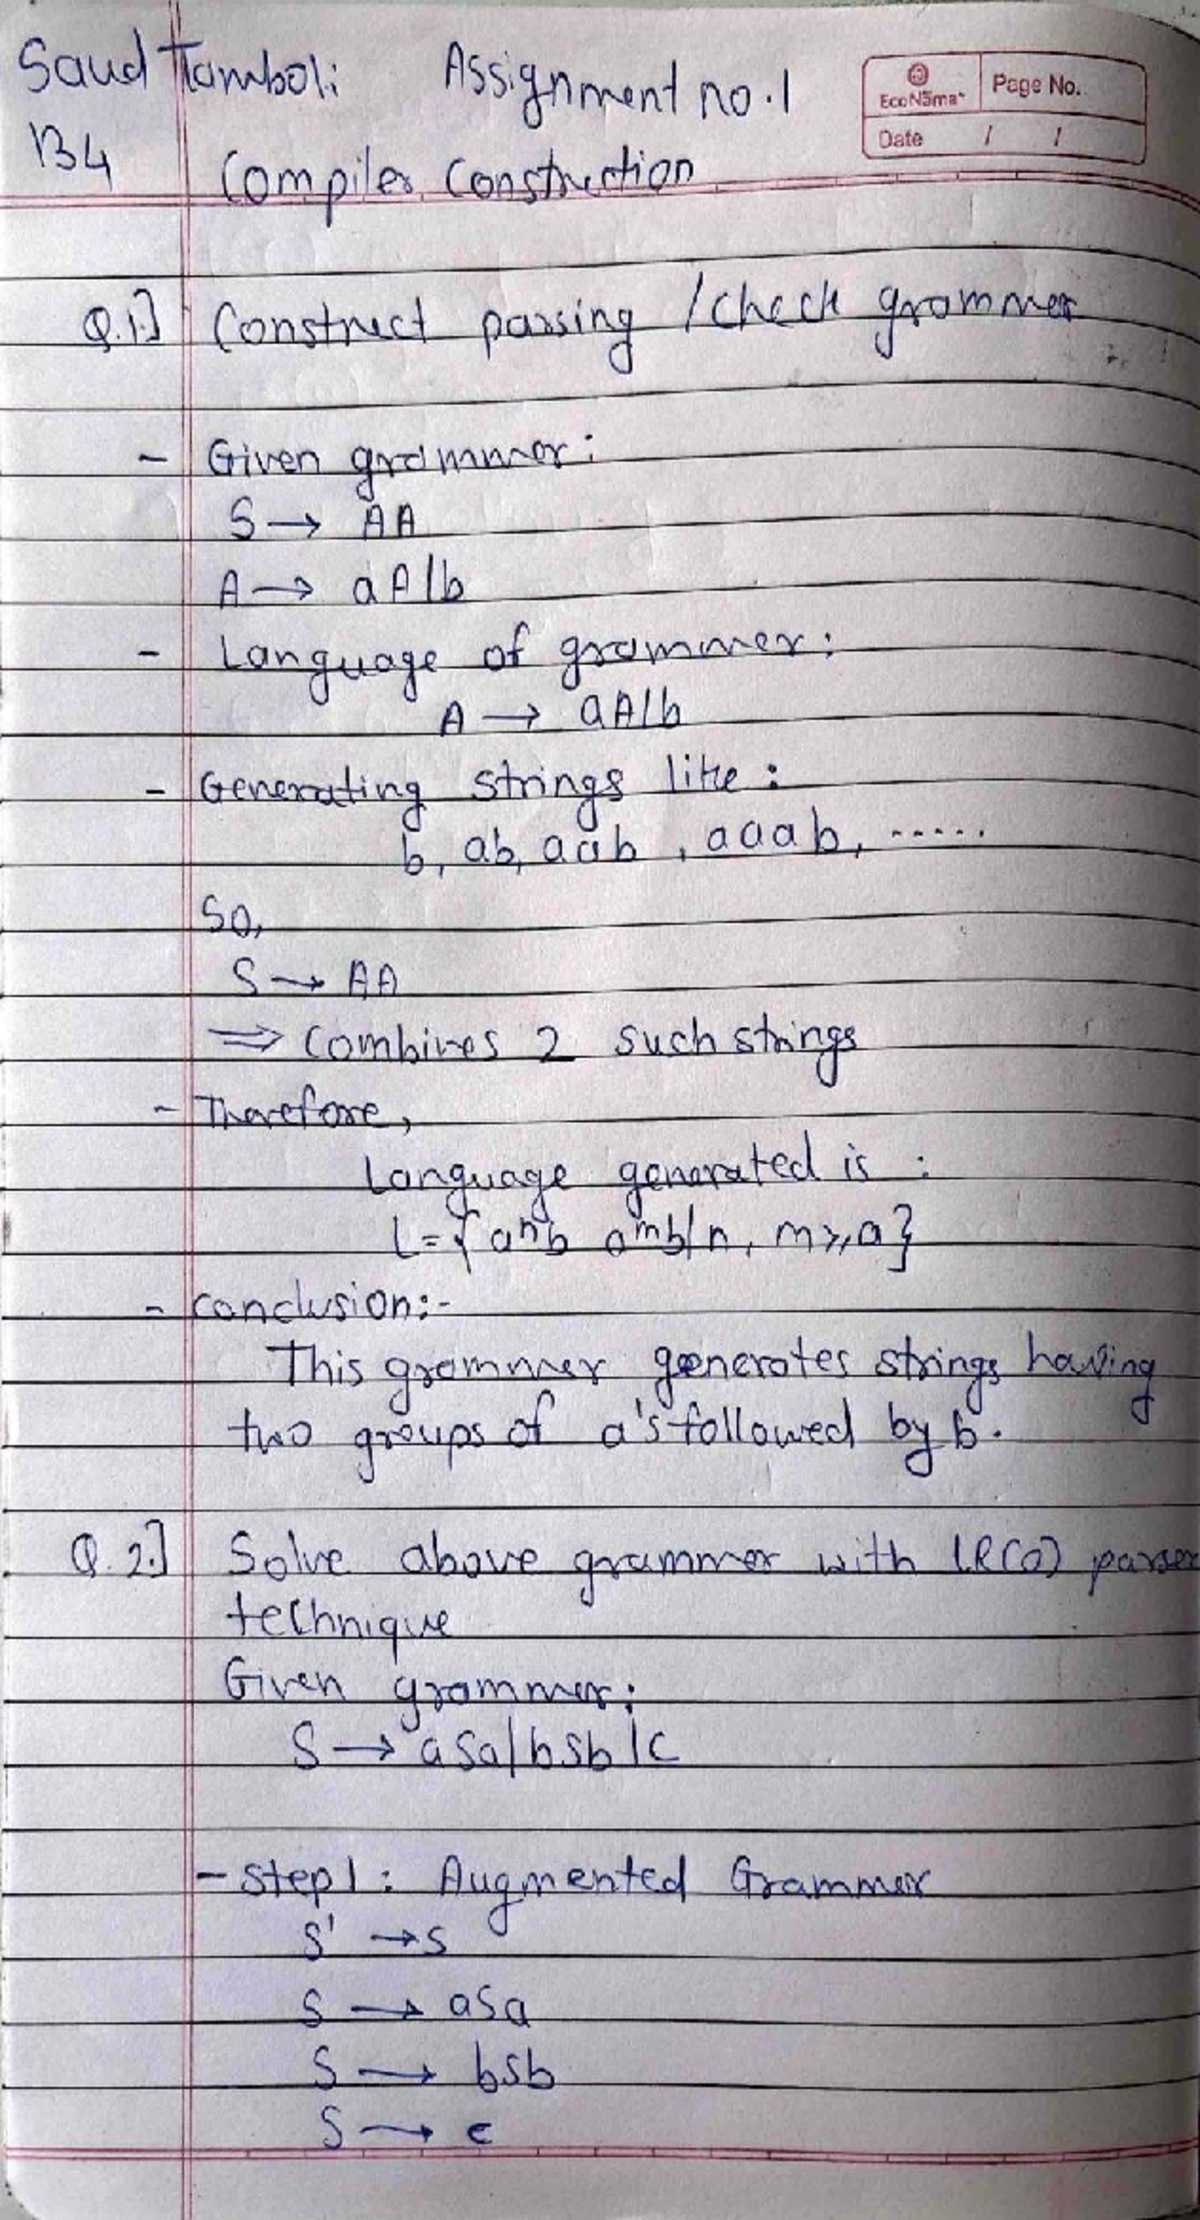 Saud Tamboli Assignment no.1
EcoNama Page No.
Date / /
B4 Compiler Construction
Q.1.] Construct parsing / check grammer
- Given grammer:
S → AA
A → aA|b
- Language of grammer:
A → aA|b
- Generating strings like:
b, ab, aab, aaab, .....
So,
S → AA
⇒ Combines 2 such strings
- Therefore,
Language generated is :
L = { aⁿb aᵐb | n, m ≥, a }
- Conclusion:-
This grammer generates strings having
two groups of a's followed by b.
Q.2.] Solve above grammer with LR(0) parser
technique
Given grammer:
S → aSa|bSb|c
- Step 1: Augmented Grammer
S' → S
S → aSa
S → bSb
S → c